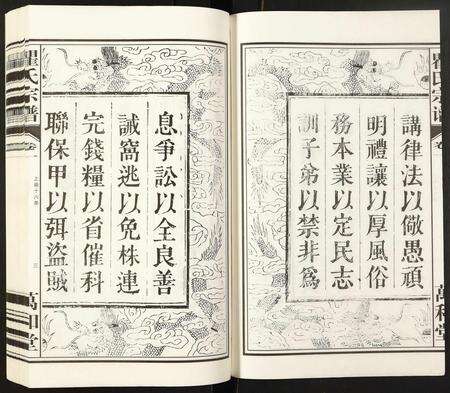 講律法以儆愚頑
明禮讓以厚風俗
務本業以定民志
訓子弟以禁非為
息爭訟以全良善
誡窩逃以免株連
完錢糧以省催科
聯保甲以弭盜賊
瞿氏宗譜
卷一
上諭十六條
三
萬和堂
瞿氏宗譜
卷
萬和堂